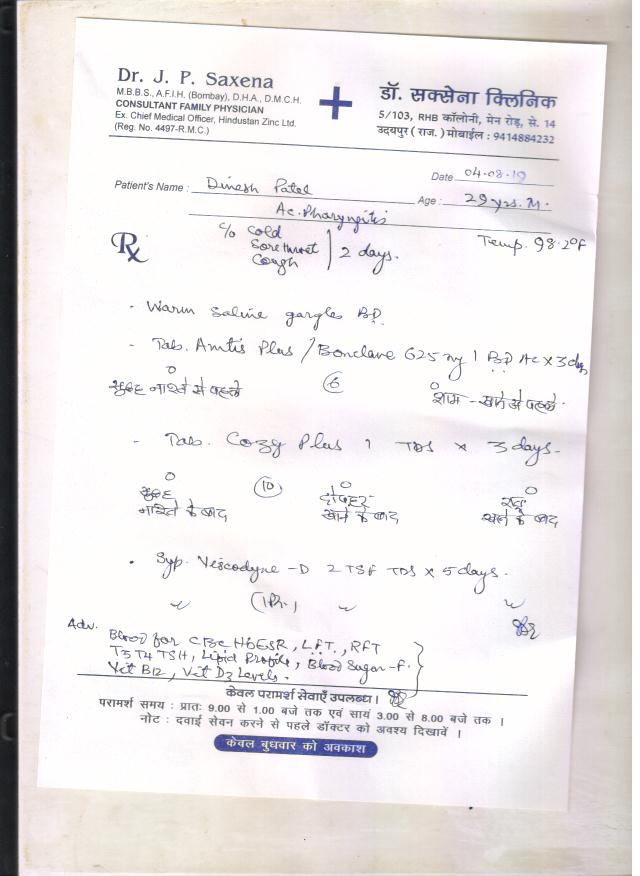 Dr. J. P. Saxena
M.B.B.S., A.F.I.H. (Bombay), D.H.A., D.M.C.H.
CONSULTANT FAMILY PHYSICIAN
Ex. Chief Medical Officer, Hindustan Zinc Ltd.
(Reg. No. 4497-R.M.C.)
डॉ. सक्सेना क्लिनिक
5/103, RHB कॉलोनी, मेन रोड़, से. 14
उदयपुर ( राज. ) मोबाईल : 9414884232
Date 04-08-19
Patient's Name : Dinesh Patel Age : 29 yrs. M.
Ac. Pharyngitis
Rx
c/o Cold
Sore throat
Cough
2 days.
Temp. 98.2°F
- Warm saline gargles BD.
- Tab. Amtis Plus / Bonclave 625 mg 1 BD AC x 3 days
सुबह नाश्ते से पहले (6) शाम - खाने से पहले
- Tab. Cozy Plus 1 TDS x 3 days-
सुबह (10) दोपहर रात
नाश्ते के बाद खाने के बाद खाने के बाद
. Syp. Viscodyne -D 2 TSF TDS x 5 days.
(1Ph.)
Adv. Blood for CBC Hb ESR, LFT, RFT
T3 T4 TSH, Lipid Profile, Blood Sugar-F.
Vit B12, Vit D3 Levels.
केवल परामर्श सेवाएँ उपलब्ध।
परामर्श समय : प्रातः 9.00 से 1.00 बजे तक एवं सायं 3.00 से 8.00 बजे तक ।
नोट : दवाई सेवन करने से पहले डॉक्टर को अवश्य दिखावें ।
केवल बुधवार को अवकाश